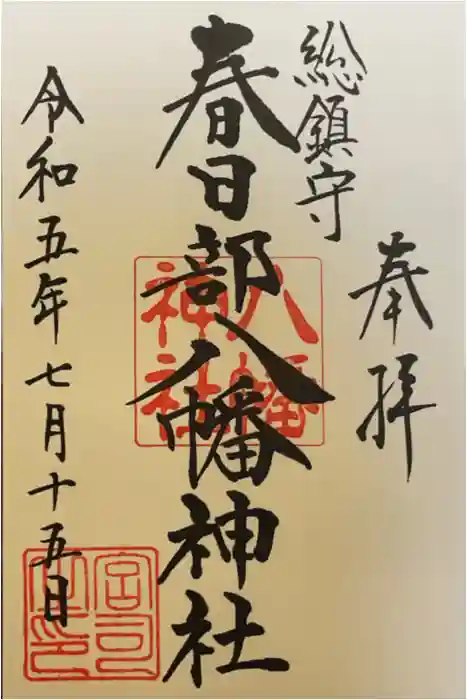 奉拝
総鎮守
春日部八幡神社
八幡
神社
令和五年七月十五日
宮司
之印